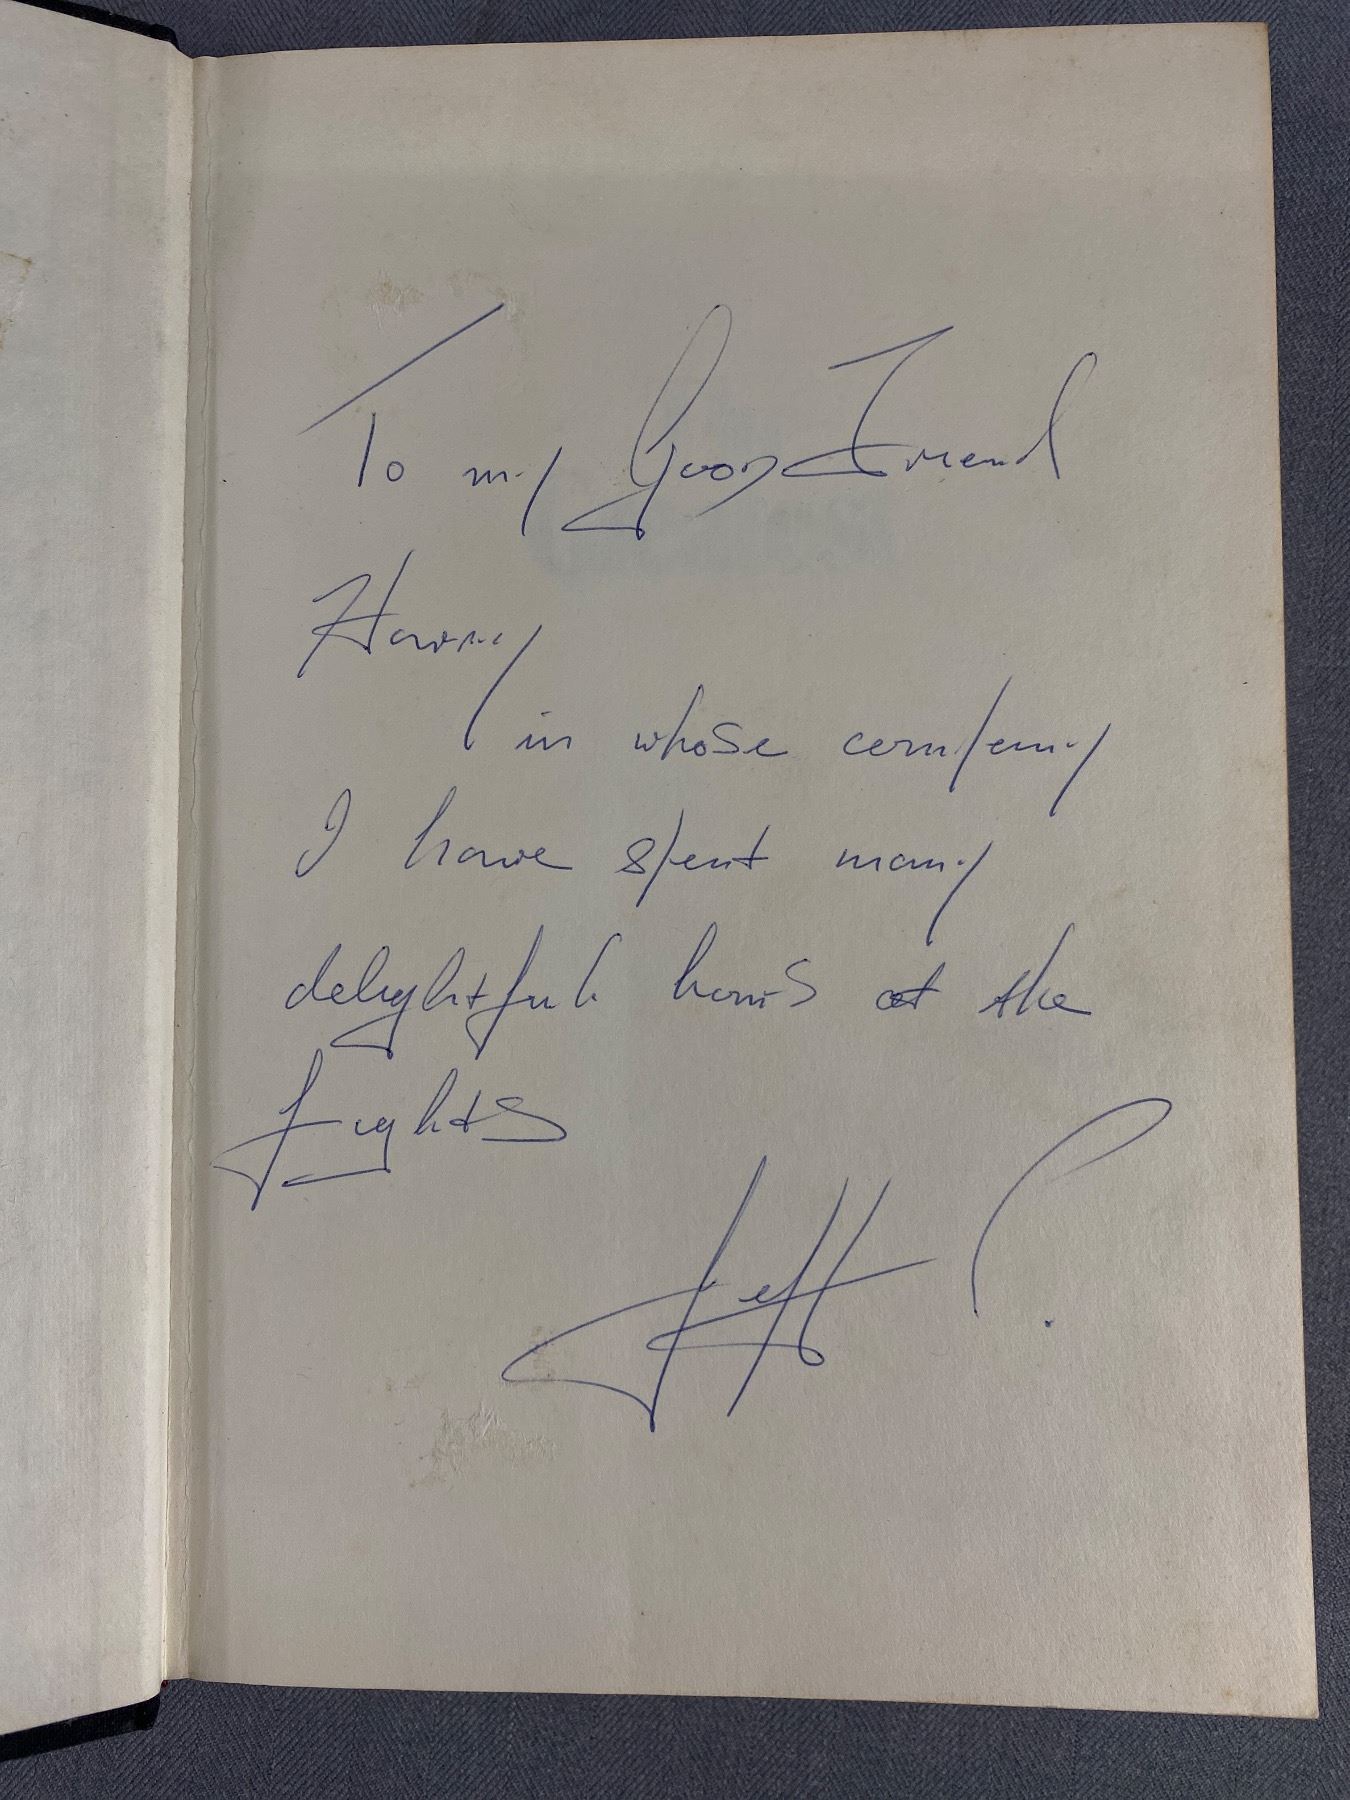 To my Good Friend
Harvey
in whose company
I have spent many
delightful hours at the
fights
Jeff